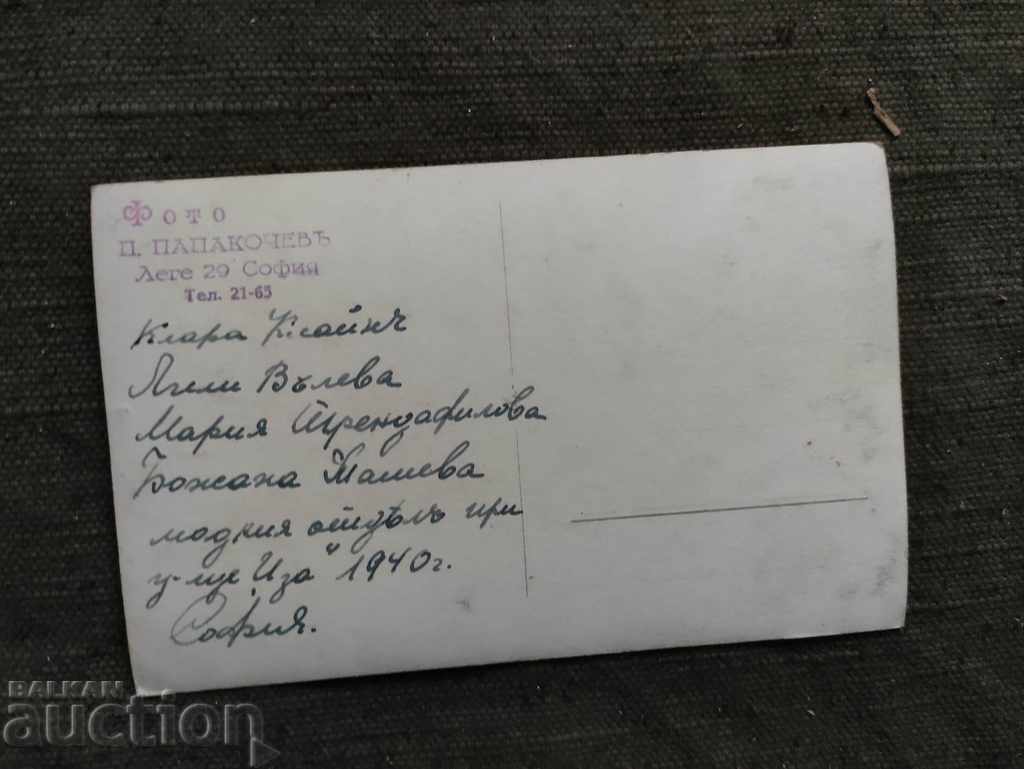 Фото
П. ПАПАКОЧЕВЪ
Леге 29 София
Тел. 21-65
Клара Клайнъ
Лили Вълева
Мария Трендафилова
Божана Ташева
модния отдѣлъ при
у-ще Иза" 1940г.
София.
BALKAN
auction